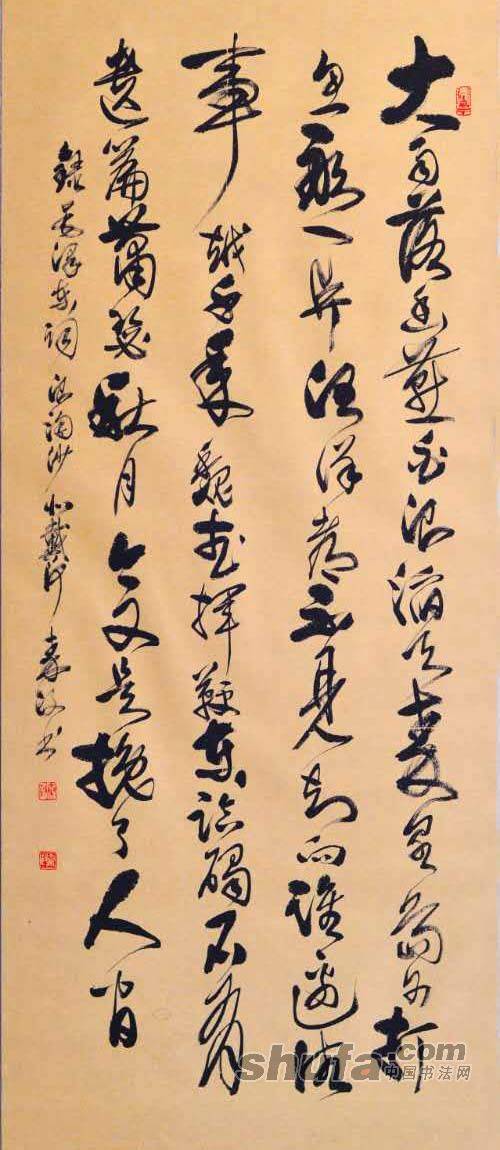 大雨落幽燕白浪滔天秦皇島外打
魚船一片汪洋都不見知向誰邊往
事越千年魏武揮鞭东临碣石有
遗篇蕭瑟秋风今又是換了人间
錄毛泽东词 浪淘沙 北戴河 书
shufa.com
中国书法网